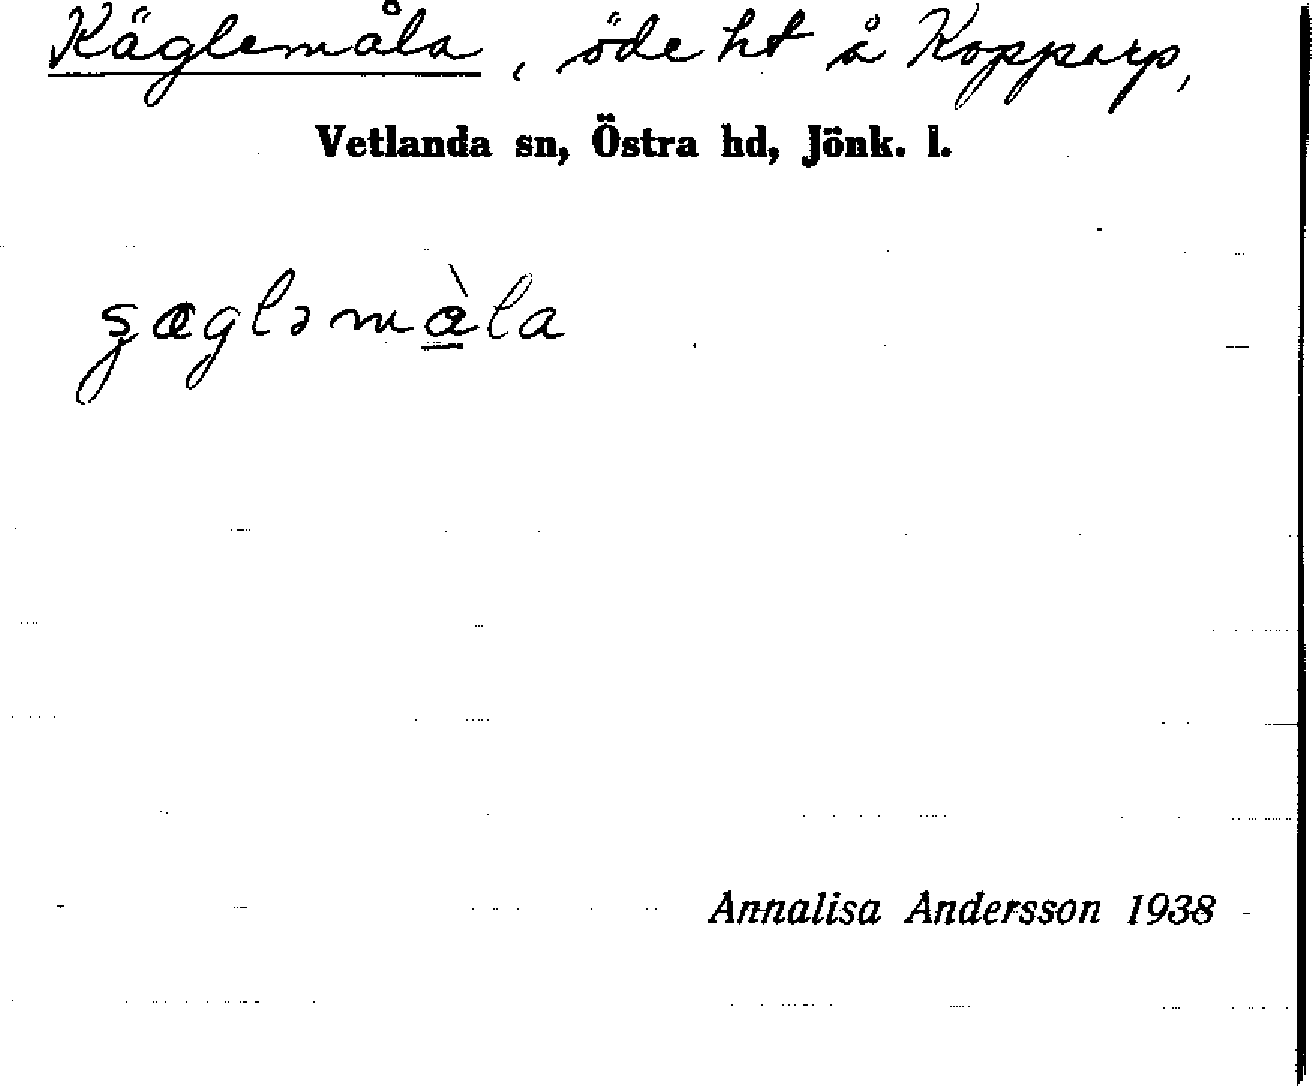 Käglemåla, öde ht å Kopparp,
Vetlanda sn, Östra hd, Jönk. l.
ʂæglǝmà̱la
Annalisa Andersson 1938